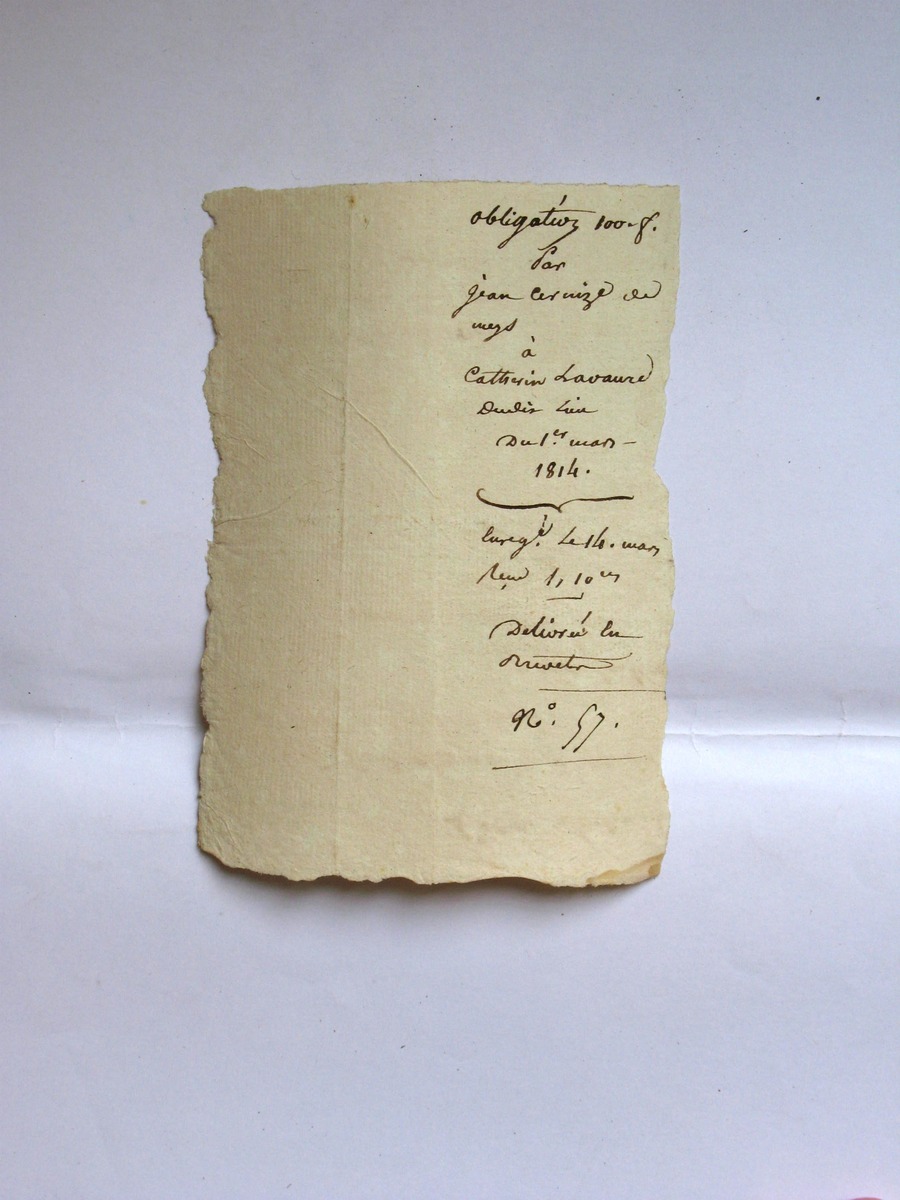 obligation 100 f.
Par
jean Cernize de
meys
à
Catherin Lavaure
Dudit Lieu
Du 1.er mars
1814.
Enreg.é Le 14. mars
Reçu 1, 10 ces
Délivrée En
Brevet
N.o 57.